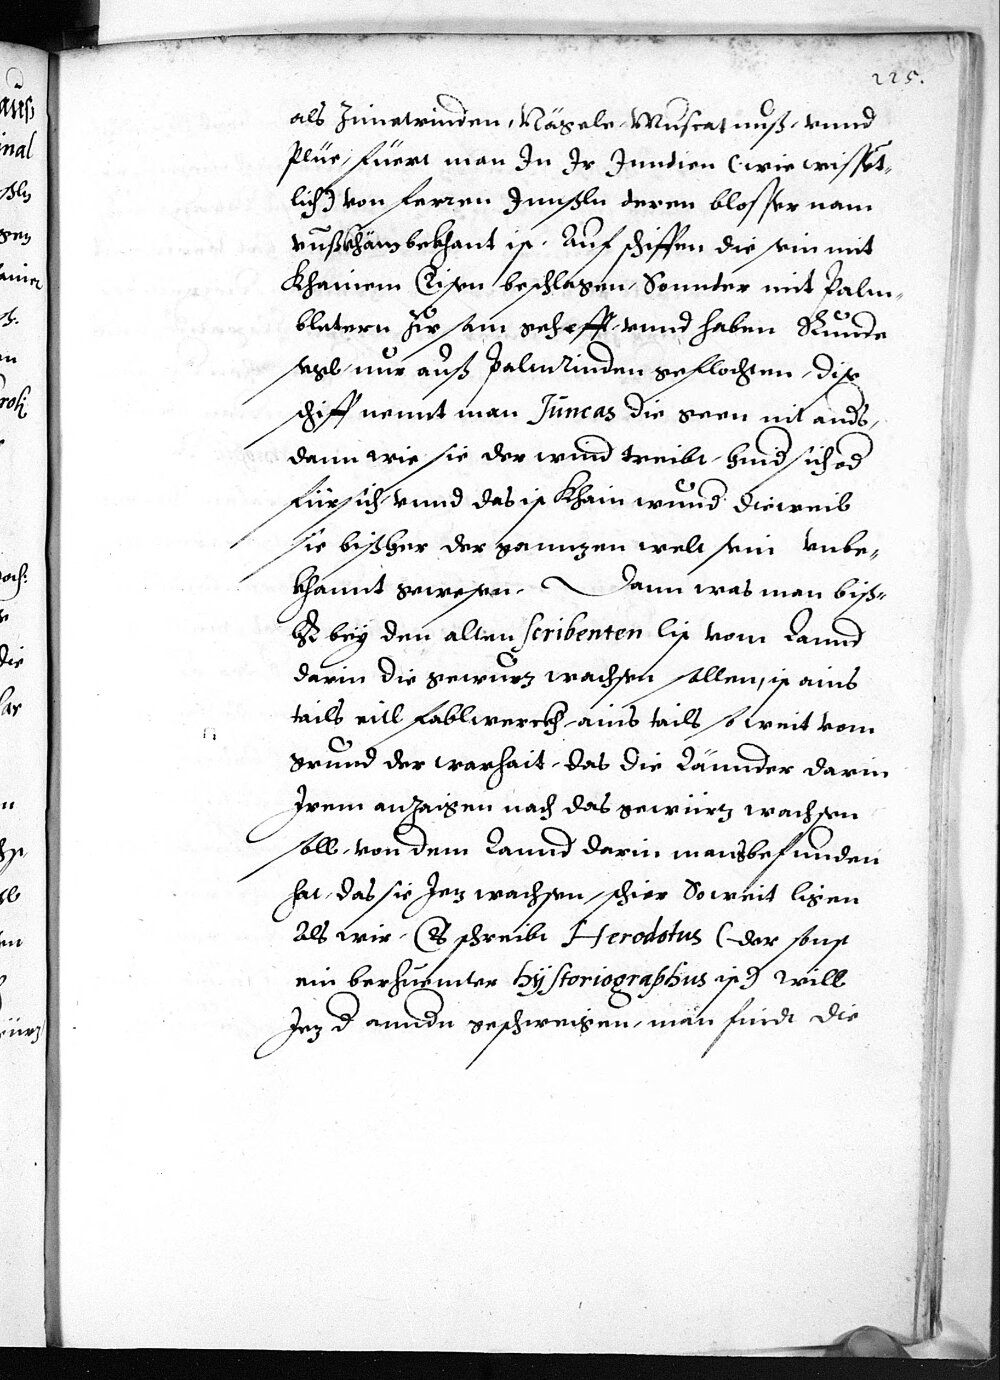 225.
als Zimetrinden, Nägele, Muscat nuß, vnnd
Plüe, füert man In Ir Inndien (wie wissēt-
lich) von ferren Innßln deren blosser nam
vnß khaum bekhant ist. Auf schiffen die sein mit
Khainem Eisen beschlagen, Sonnder mit Palm-
bletern Zusam geheft, vnnd haben Runde
segl, nur auß Palm Rinden geflochten, dise
schiff nennt man Juncas die geen nit annders,
dann wie sie der wind treibt, hindsich od
fürsich, vnnd das ist khain wund dieweil
sie bißher der ganntzen welt sein vnbe-
khannt gewesen. Dann was man biß-
her bey den alten Scribenten list vom Lannd
darin die gewurtz wachsen sollen, ist ains
tails eitl fablwerckh, ains tails so weit vom
grund der warhait, das die Lännder darin
Irem anzaigen nach das gewürtz wachsen
soll, von dem Lannd darin mans befunden
hat, das sie Jetz wachsen, schier So weit ligen
Als wir. Es schreibt Herodotus (der sonst
ein berhuembter hystoriographus ist) will
Jetz d anndn geschweigen, man findt die